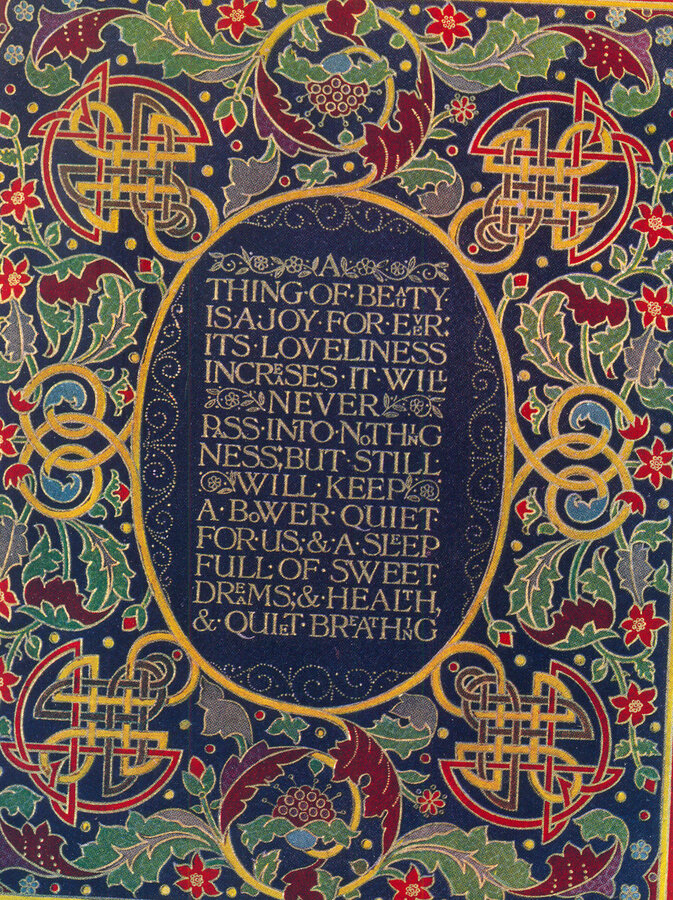 A
THING·OF·BEAUTY·
IS·A·JOY·FOR·EVER:
ITS·LOVELINESS
INCREASES·IT·WILL
NEVER
PASS·INTO·NOTHING
NESS; BUT·STILL
WILL·KEEP
A·BOWER·QUIET·
FOR·US;&·A·SLEEP
FULL·OF·SWEET·
DREAMS;&·HEALTH,
&·QUIET·BREATHING